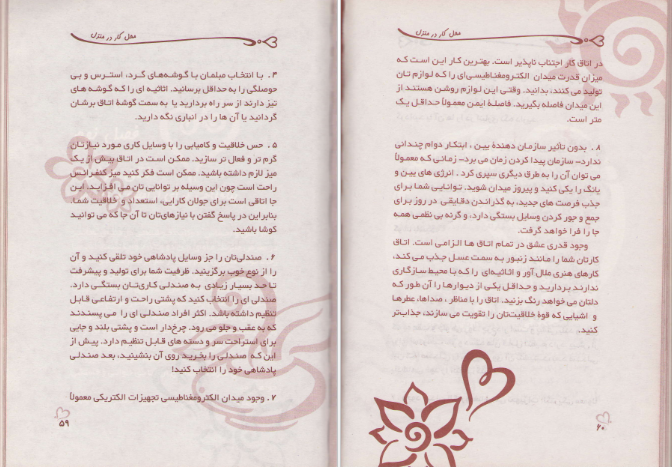 محل کار در منزل
۴. با انتخاب مبلمان با گوشه‌های گرد، استرس و بی
حوصلگی را به حداقل برسانید. اثاثیه ای را که گوشه های
تیز دارند از سر راه بردارید یا به سمت گوشهٔ اتاق برشان
گردانید یا آن ها را در انباری نگه دارید.
۵. حس خلاقیت و کامیابی را با وسایل کاری مورد نیازتان
گرم تر و فعال تر سازید. ممکن است در اتاق بیش از یک
میز لازم داشته باشید. ممکن است فکر کنید میز کنفرانس
راحت است چون این وسیله بر توانایی تان می افزاید. این
جا اتاقی است برای جولان کارایی، استعداد و خلاقیت شما.
بنابراین در پاسخ گفتن با نیازهای‌تان تا آن جا که می توانید
کوشا باشید.
۶. صندلی‌تان را جز وسایل پادشاهی خود تلقی کنید و آن
را از نوع خوب برگزینید. ظرفیت شما برای تولید و پیشرفت
تا حد بسیار زیادی به صندلی کاری‌تان بستگی دارد.
صندلی ای را انتخاب کنید که پشتی راحت و ارتفاعی قابل
تنظیم داشته باشد. اکثر افراد صندلی ای را می پسندند
که به عقب و جلو می رود. چرخ‌دار است و پشتی بلند و جایی
برای استراحت سر و دسته های قابل تنظیم دارد. پیش از
این که صندلی را بخرید روی آن بنشینید، بعد صندلی
پادشاهی خود را انتخاب کنید!
۷. وجود میدان الکترومغناطیسی تجهیزات الکتریکی معمولاً
۵۹
محل کار در منزل
در اتاق کار اجتناب ناپذیر است. بهترین کار این است که
میزان قدرت میدان الکترومغناطیسی‌ای را که لوازم تان
تولید می کنند، بدانید. وقتی این لوازم روشن هستند از
این میدان فاصله بگیرید. فاصلهٔ ایمن معمولاً حداقل یک
متر است.
۸. بدون تأثیر سازمان دهندهٔ بین، ابتکار دوام چندانی
ندارد- سازمان پیدا کردن زمان می برد- زمانی که معمولاً
می توان آن را به طرق دیگری سپری کرد. انرژی های یین و
یانگ را یکی کنید و پیروز میدان شوید. توانایی شما برای
جذب فرصت های جدید، به گذراندن دقایقی در روز برای
جمع و جور کردن وسایل بستگی دارد، و گرنه بی نظمی همه
جا را فرا خواهد گرفت.
وجود قدری عشق در تمام اتاق ها الزامی است. اتاق
کارتان شما را مانند زنبور به سمت عسل جذب می کند،
کارهای هنری ملال آور و اثاثیه‌ای را که با محیط سازگاری
ندارند بردارید و حداقل یکی از دیوارها را آن طور که
دلتان می خواهد رنگ بزنید. اتاق را با مناظر، صداها، عطرها
و اشیایی که قوهٔ خلاقیت‌تان را تقویت می سازند، جذاب‌تر
کنید.
۶۰